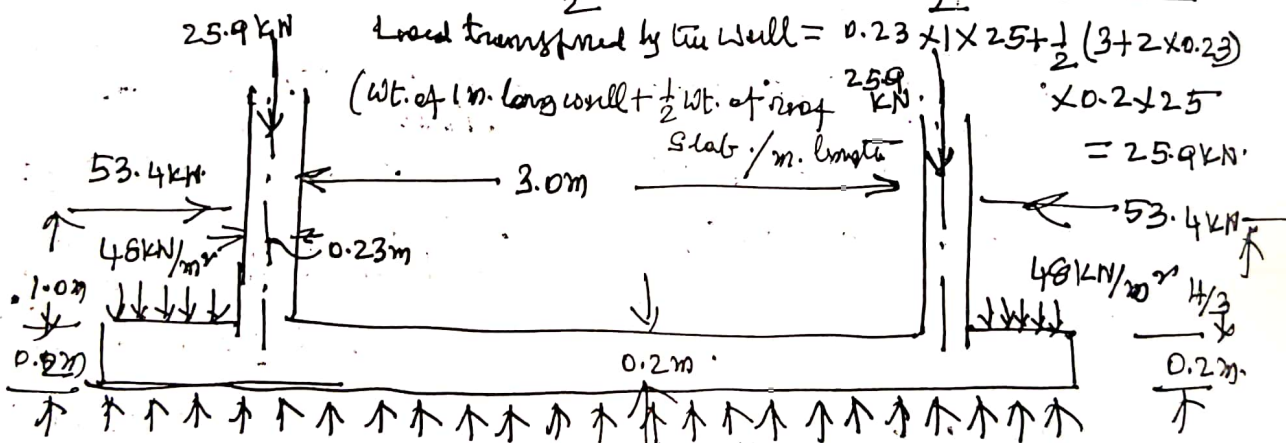 25.9KN Load transferred by the wall = 0.23 x 1 x 25 + 1/2 (3+2x0.23)
(Wt. of 1m. long wall + 1/2 wt. of roof 25.9 KN. x0.2x25
Slab./m. length = 25.9KN.
53.4KN. 3.0m 53.4KN
48KN/m² 0.23m 48KN/m² H/3
1.0m
0.2m 0.2m. 0.2m.